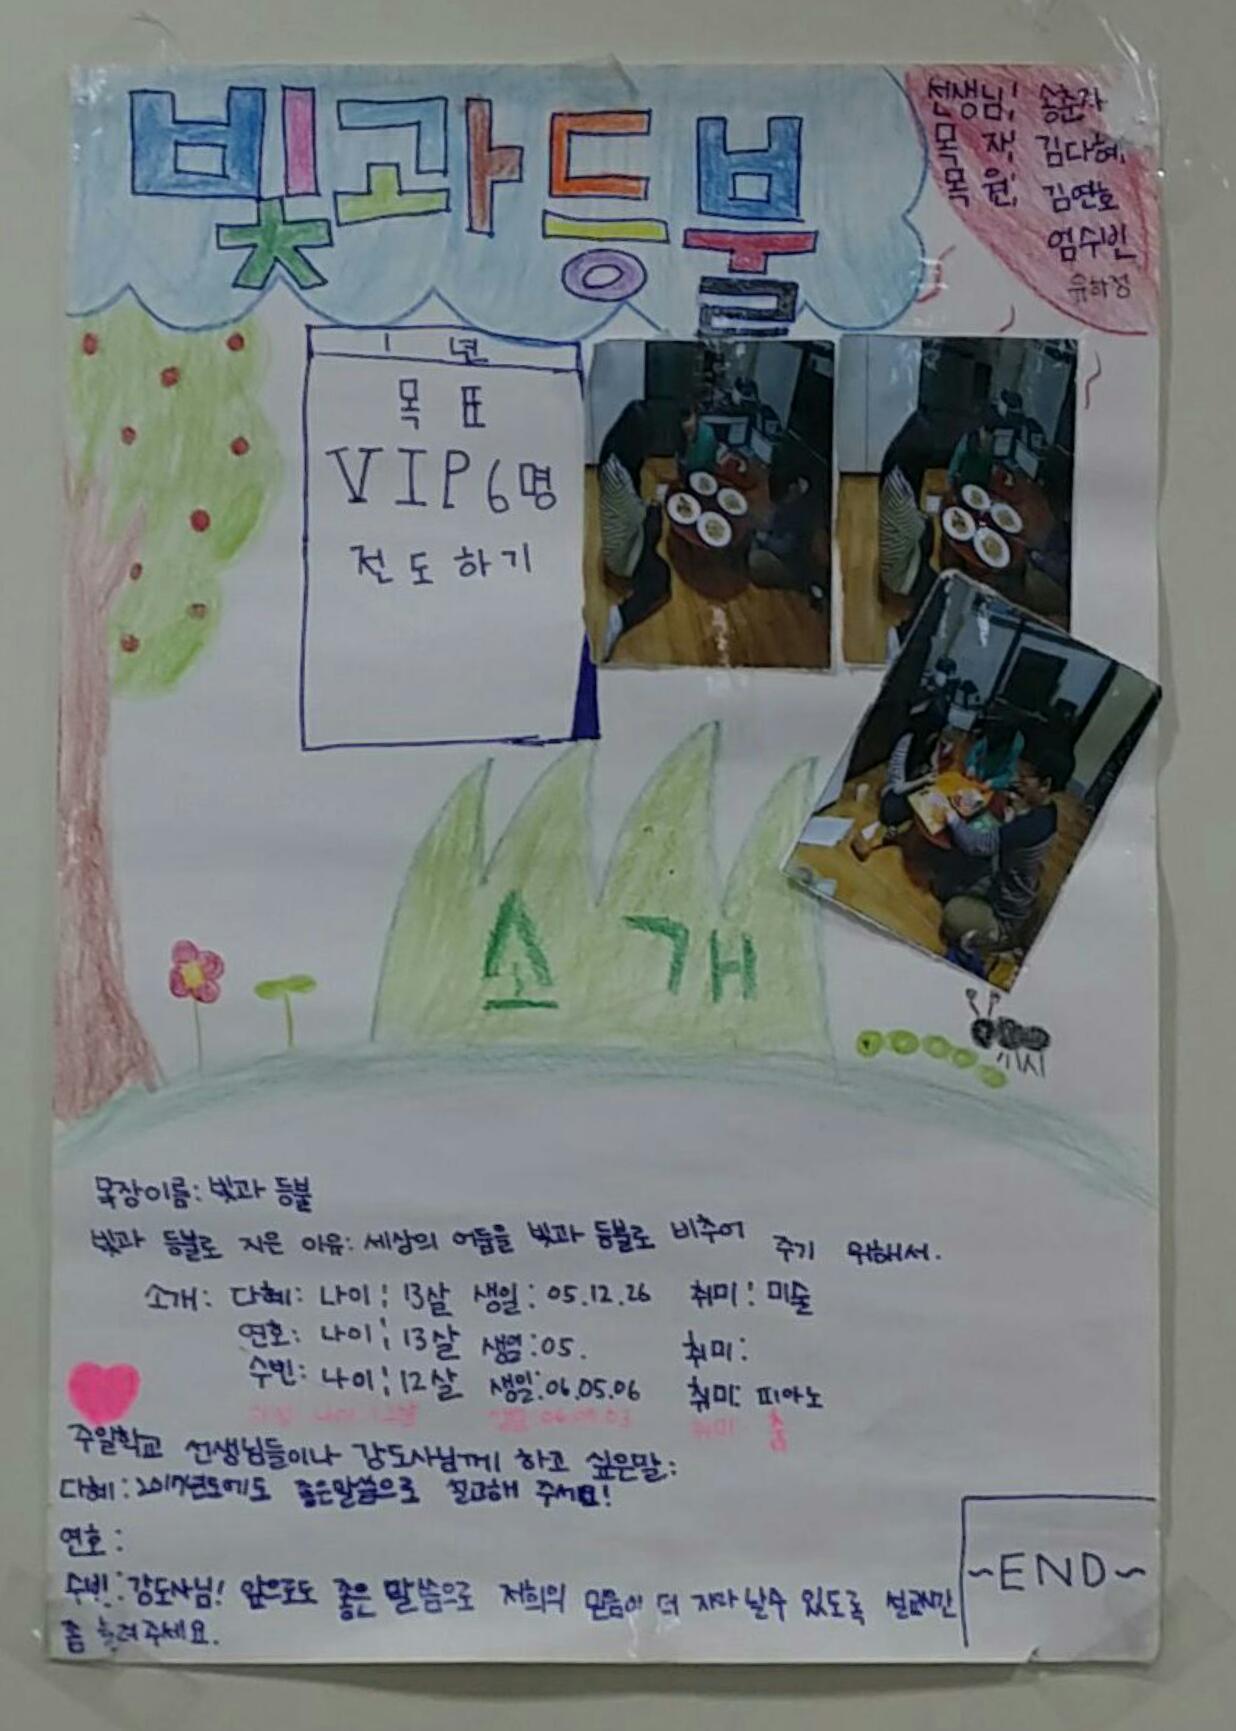 빛과등불
선생님: 송춘자
목 자: 김다혜
목 원: 김연호
엄수빈
유하정
1 년
목 표
VIP 6명
전도하기
소개
목장이름: 빛과 등불
빛과 등불로 지은 이유: 세상의 어둠을 빛과 등불로 비추어 주기 위해서.
소개: 다혜: 나이: 13살 생일: 05.12.26 취미: 미술
연호: 나이: 13살 생일: 05. 취미:
수빈: 나이: 12살 생일: 06.05.06 취미: 피아노
하정: 나이: 12살 생일: 취미: 춤
주일학교 선생님들이나 강도사님께 하고 싶은말:
다혜: 2017년도에도 좋은말씀으로 설교해 주세요!
연호:
수빈: 강도사님! 앞으로도 좋은 말씀으로 저희의 믿음이 더 자라날수 있도록 설교시간
좀 늘려주세요.
~END~